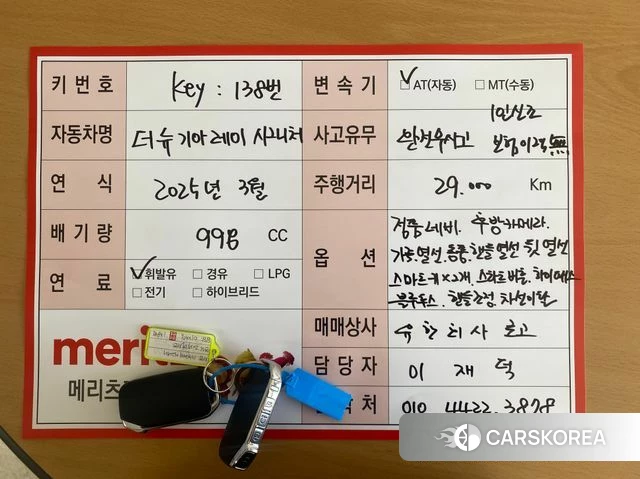 키 번 호 Key : 138번 변 속 기 ☑AT(자동) □MT(수동)
자동차명 더 뉴 기아 레이 시그니처 사고유무 완전무사고 1인신조
보험이력無
연 식 2025년 3월 주행거리 29.000 Km
배 기 량 998 CC 옵 션 정품네비. 후방카메라.
가죽열선.통풍.핸들열선 뒷열선
스마트키x2개. 스타트버튼. 하이패스
블루투스. 핸들리모컨. 차선이탈
연 료 ☑휘발유 □경유 □LPG
□전기 □하이브리드
매매상사
담 당 자 이 재 덕
처 010 4422.3878
merit
메리츠
CARSKOREA